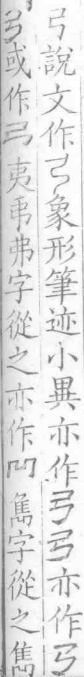 弓說文作弓象形筆迹小異亦作弓弓亦作弓
弓或作弓夷弔弗字從之亦作凹雋字從之雋